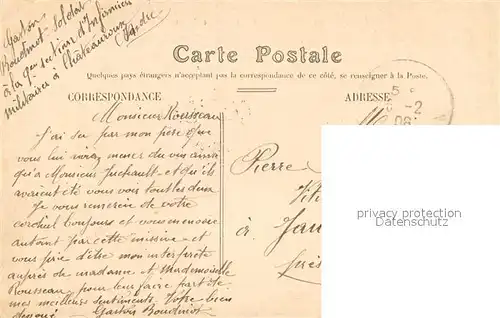 Gaston
Boudinot Soldat
à la 9e section d'Infirmiers
militaires à Châteauroux
(Indre)
Carte Postale
Quelques pays étrangers n'acceptant pas la correspondance de ce côté, se renseigner à la Poste.
CORRESPONDANCE
ADRESSE
5
-2
08
Monsieur Rousseau
J'ai su par mon père que
vous lui aviez mener du vin ainsi
qu'à Monsieur Juchault et qu'ils
avaient été vous voir tous les deux
Je vous remercie de votre
cordial bonjours et vous en envoie
autant par cette missive et
vous prie d'être mon interprète
auprès de madame et Mademoiselle
Rousseau pour leur faire part de
mes meilleurs sentiments. Votre bien
dévoué Gaston Boudinot
M
Pierre
Viti
à Jau
près
privacy protection
Datenschutz